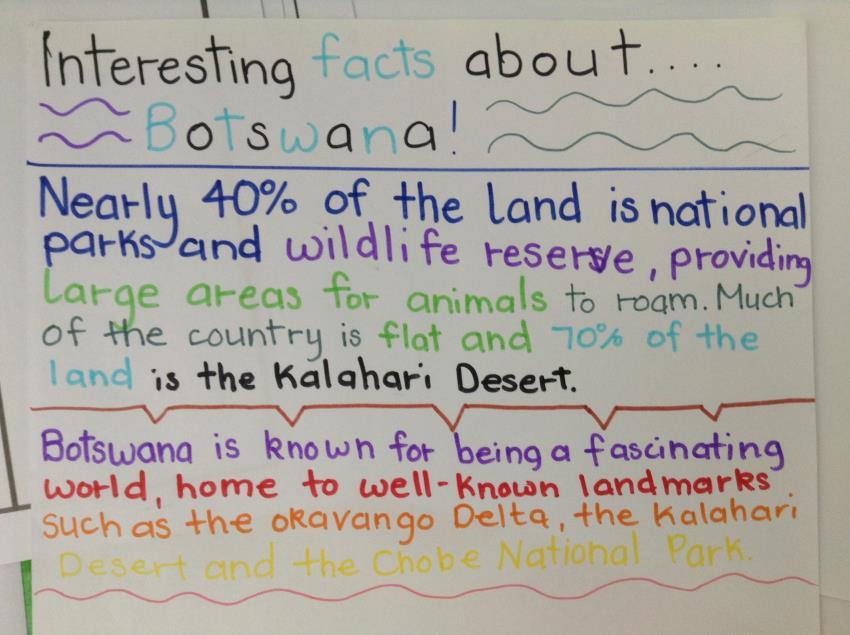 Interesting facts about....
Botswana!
Nearly 40% of the land is national
parks and wildlife reserve, providing
large areas for animals to roam. Much
of the country is flat and 70% of the
land is the Kalahari Desert.
Botswana is known for being a fascinating
world, home to well-known landmarks
such as the okavango Delta, the Kalahari
Desert and the Chobe National Park.